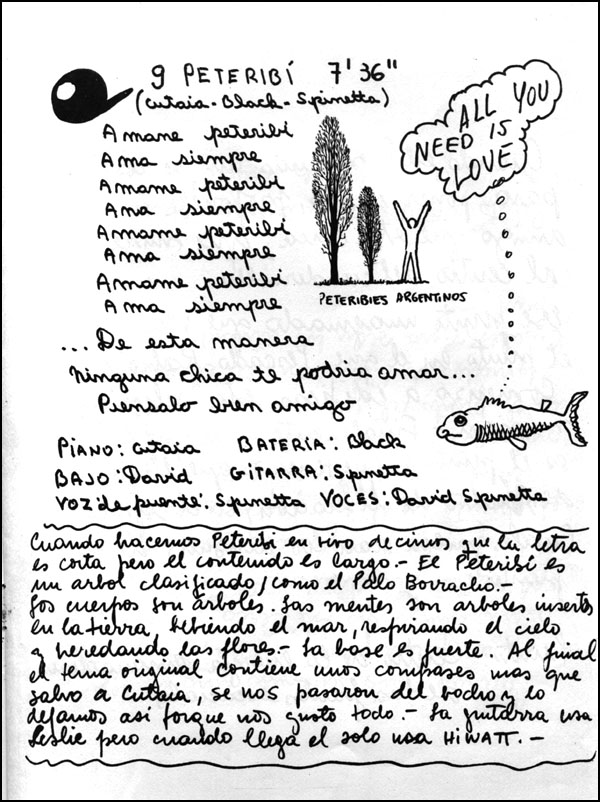 9 PETERIBÍ 7'36"
(Cutaia - Black - Spinetta)
Amame peteribí
Ama siempre
Amame peteribi
Ama siempre
Amame peteribi
Ama siempre
Amame peteribi
Ama siempre
ALL YOU
NEED IS
LOVE
PETERIBIES ARGENTINOS
... De esta manera
ninguna chica te podria amar...
Piensalo bien amigo
PIANO: Cutaia BATERIA: Black
BAJO: David GITARRA: Spinetta
VOZ 'de puente': Spinetta VOCES: David Spinetta
Cuando hacemos Peteribi en vivo decimos que la letra
es corta pero el contenido es largo.- El Peteribí es
un arbol clasificado, como el Palo Borracho.-
Los cuerpos son árboles. Las mentes son arboles insertos
en la tierra, bebiendo el mar, respirando el cielo
y heredando las flores.- La base es fuerte. Al final
el tema original contiene unos compases mas que
salvo a Cutaia, se nos pasaron del bocho y lo
dejamos asi porque nos gusto todo.- La guitarra usa
Leslie pero cuando llega el solo usa HIWATT.-